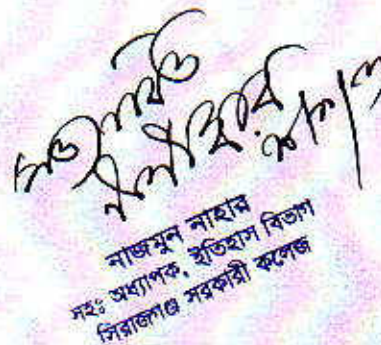 সত্যায়িত
নাজমুন নাহার
সহঃ অধ্যাপক, ইতিহাস বিভাগ
সিরাজগঞ্জ সরকারী কলেজ